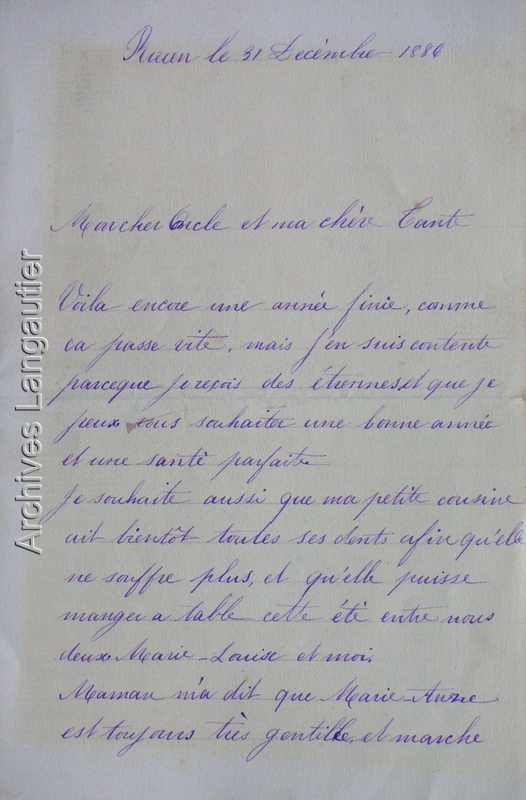 Rouen le 31 Décembre 1886
Mon cher Oncle et ma chère Tante
Voila encore une année finie, comme
ca passe vite, mais j'en suis contente
parceque je reçois des étiennes et que je
peux vous souhaiter une bonne année
et une santé parfaite
Je souhaite aussi que ma petite cousine
ait bientôt toutes ses dents afin qu'elle
ne souffre plus, et qu'elle puisse
manger a table cette été entre nous
deux Marie-Louise et moi.
Maman m'a dit que Marie-Anne
est toujours très gentille, et marche
Archives Langautier